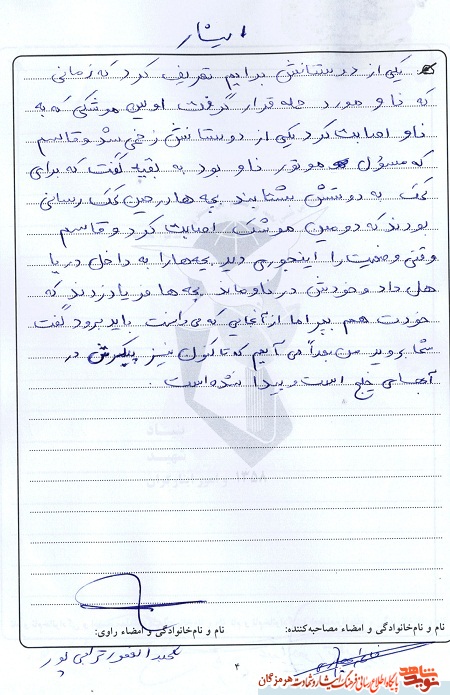 ایثار
یکی از دوستانش برایم تعریف کرد که زمانی
که ناو مورد حمله قرار گرفت اولین موشکی که به
ناو اصابت کرد یکی از دوستانش زخمی شد و قاسم
که مسئول موتور ناو بود به بقیه گفت که برای
کمک به دوستش بشتابند بچه ها در حین کمک رسانی
بودند که دومین موشک اصابت کرد و قاسم
وقتی وضعیت را اینجوری دید بچه ها را به داخل دریا
هل داد و خودش در ناو ماند بچه ها فریاد زدند که
خودت هم بپر اما از آنجایی که می دانست باید برود گفت
شما بروید من بعداً می آیم که تا کنون نیز پیکرش در
آبهای خلیج است و پیدا نشده است.
بنیاد
شهید
۱۳۵۸
نام و نام خانوادگی و امضاء مصاحبه کننده:
نام و نام خانوادگی و امضاء راوی:
۴
نوید شاهد
پایگاه اطلاع رسانی فرهنگ ایثار و شهادت هرمزگان